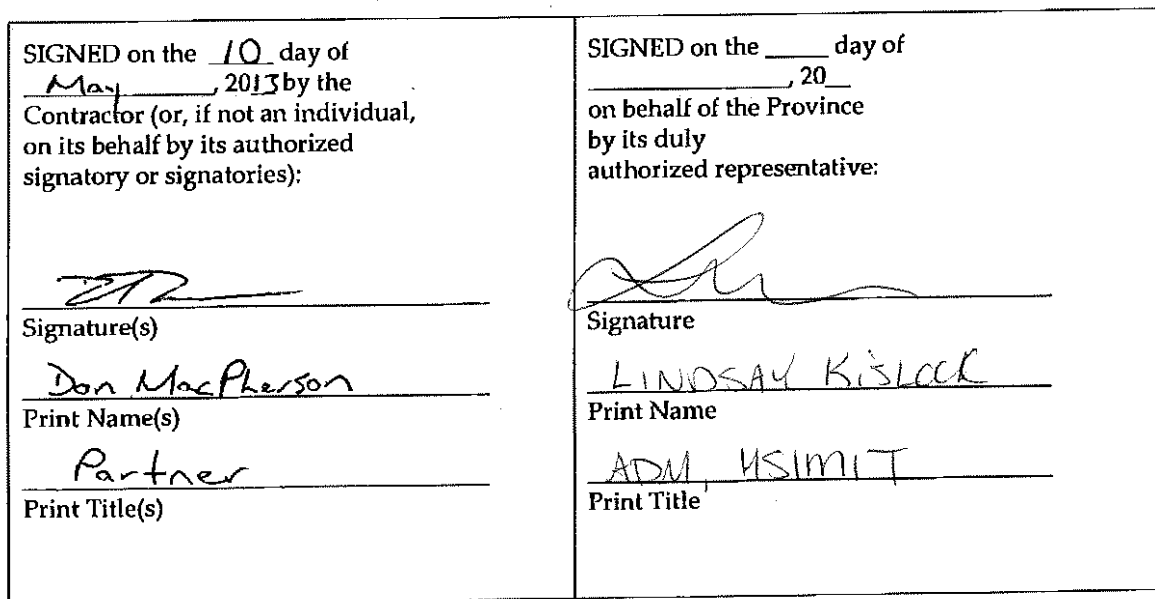 SIGNED on the 10 day of
May, 2013 by the
Contractor (or, if not an individual,
on its behalf by its authorized
signatory or signatories):
Signature(s)
Don MacPherson
Print Name(s)
Partner
Print Title(s)
SIGNED on the _____ day of
_____________, 20__
on behalf of the Province
by its duly
authorized representative:
Signature
LINDSAY KISLOCK
Print Name
ADM, HSIMIT
Print Title